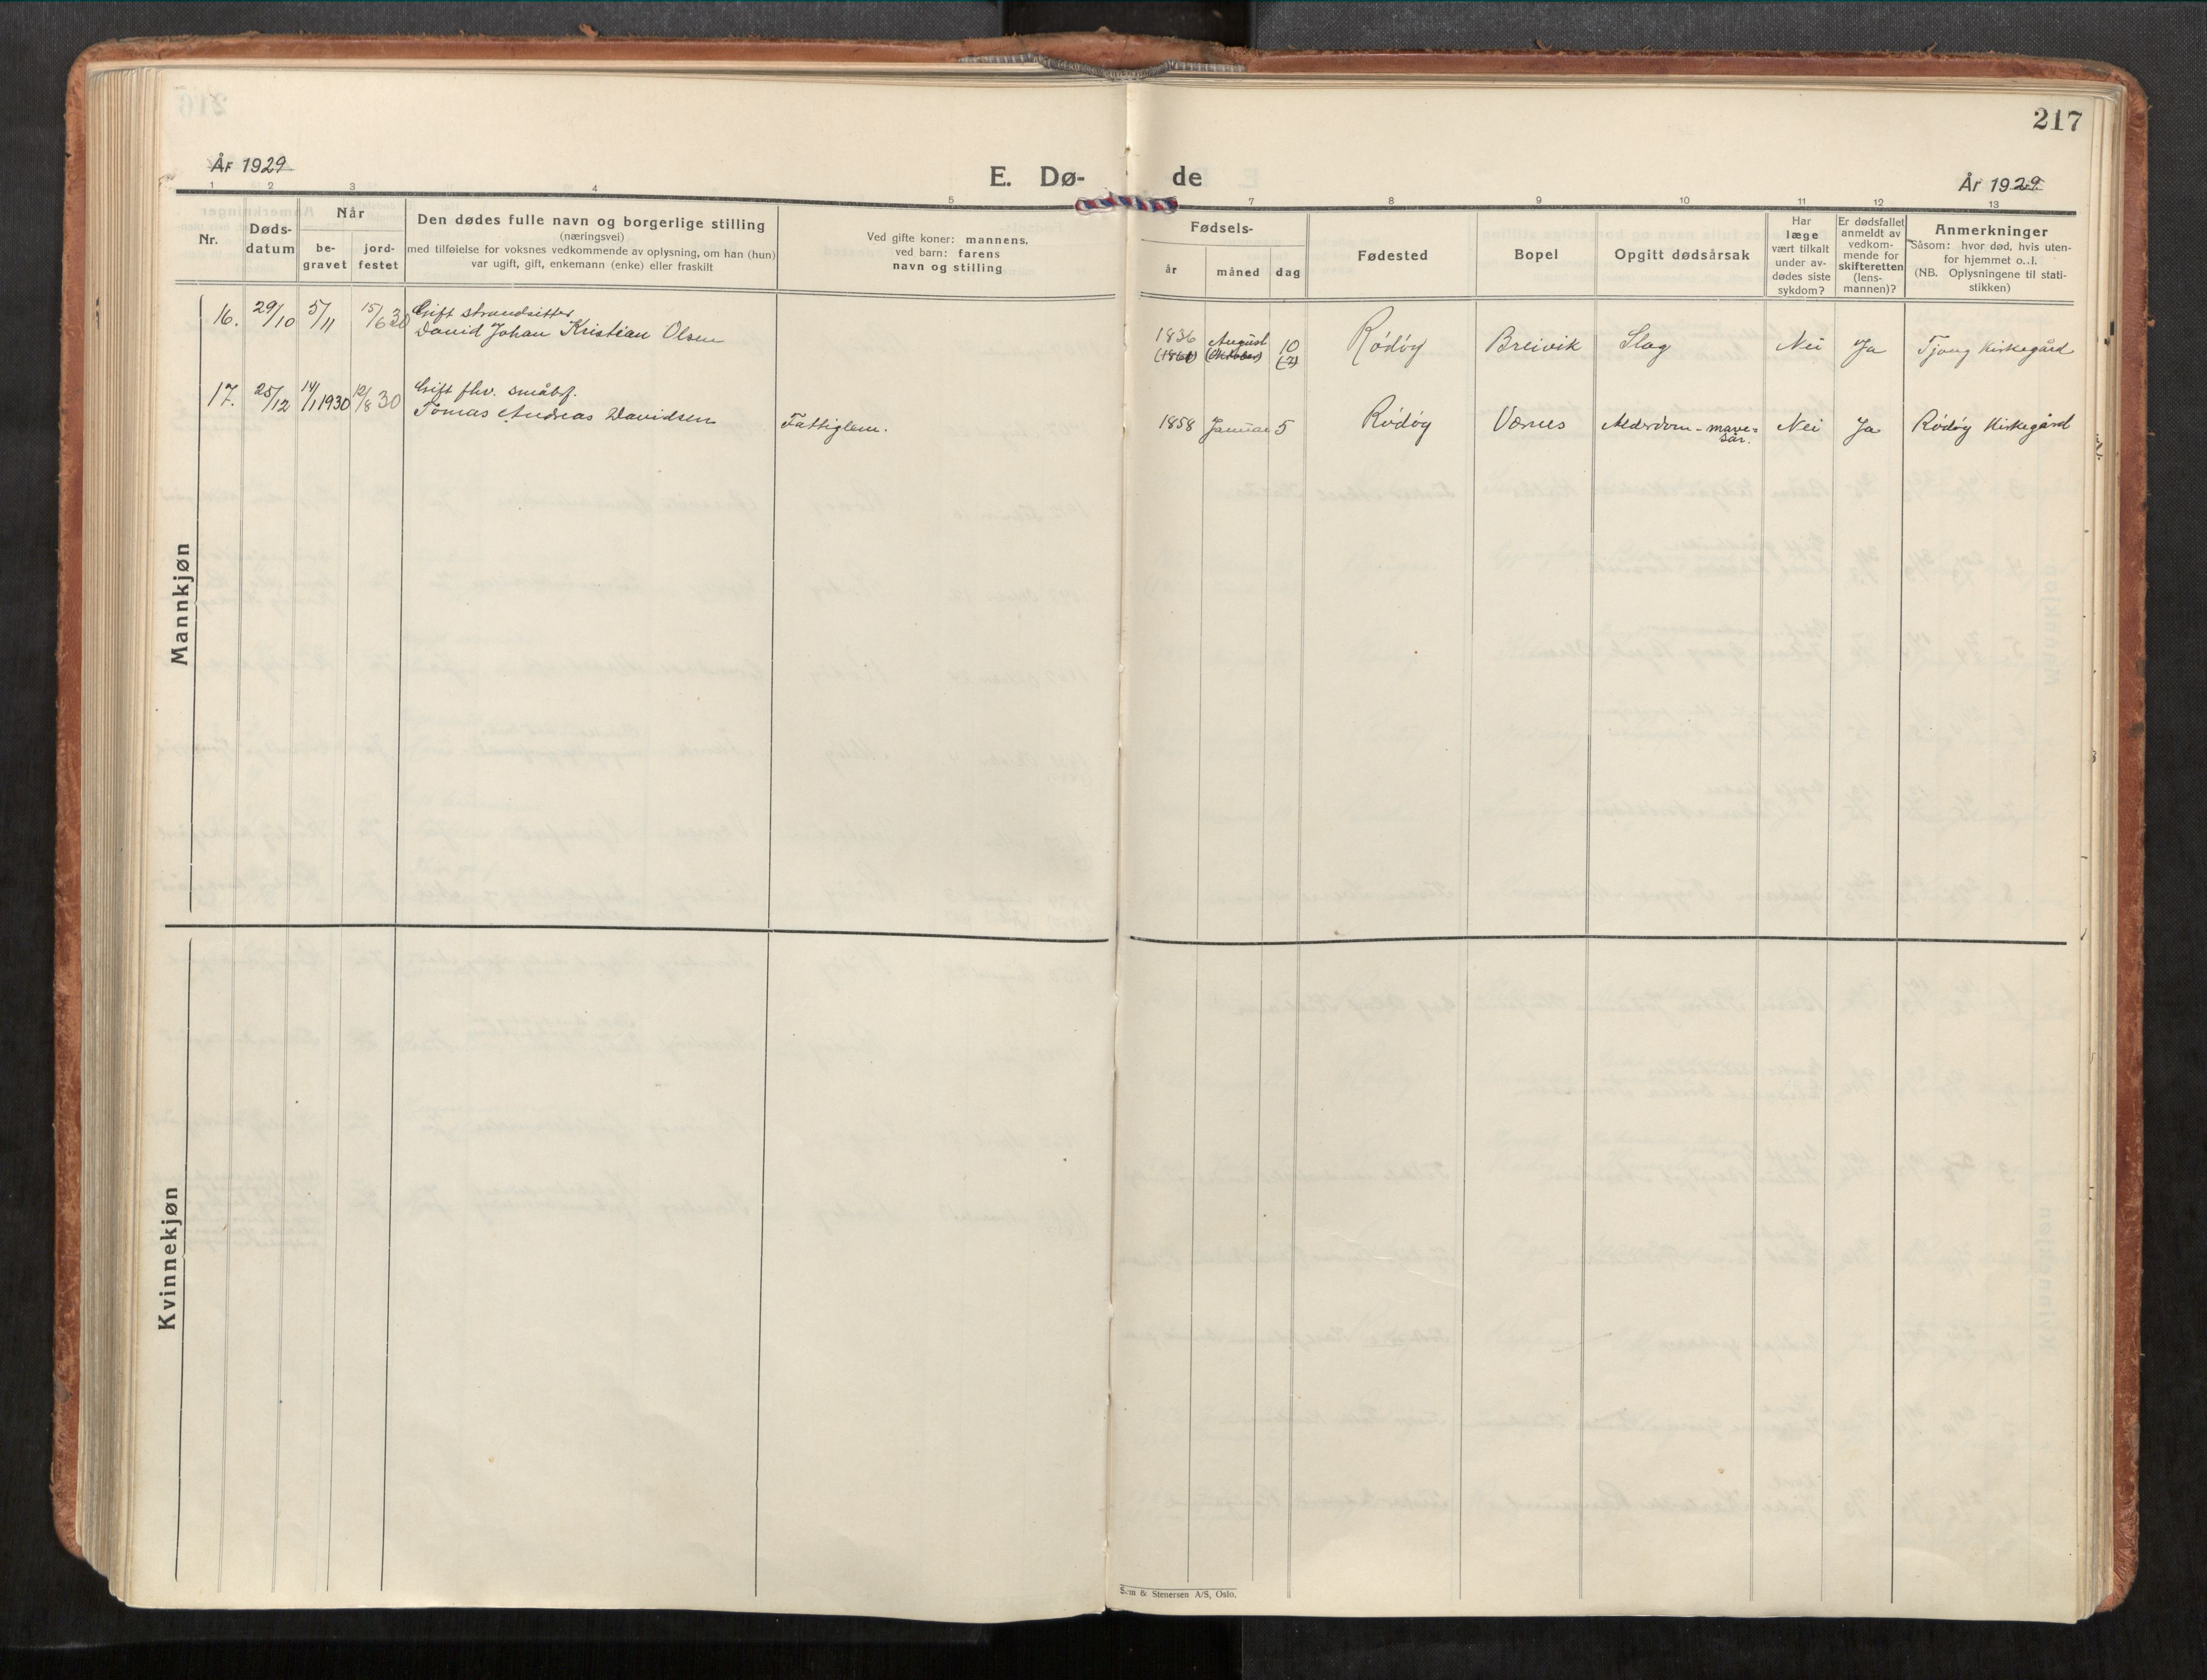 217
År 1929
E. Dø-
de
År 1929
1 2 3 4 5 7 8 9 10 11 12 13
Nr.
Døds-
datum
Når
be-
gravet
jord-
festet
Den dødes fulle navn og borgerlige stilling
(næringsvei)
med tilføielse for voksnes vedkommende av oplysning, om han (hun)
var ugift, gift, enkemann (enke) eller fraskilt
Ved gifte koner: mannens.
ved barn: farens
navn og stilling
Fødsels-
år
måned
dag
Fødested
Bopel
Opgitt dødsårsak
Har
læge
vært tilkalt
under av-
dødes siste
sykdom?
Er dødsfallet
anmeldt av
vedkom-
mende for
skifteretten
(lens-
mannen)?
Anmerkninger
Såsom: hvor død, hvis uten-
for hjemmet o. l.
(NB. Oplysningene til stati-
stikken)
Mannkjøn
16. 29/10 5/11 15/6 30 Gift strandsitter
David Johan Kristian Olsen
1836 August 10 Rødøy Breivik Slag Nei Ja Tjong Kirkegård
(1861) (Oktober) (7)
17. 25/12 14/1 1930 12/8 30 Gift fhv. småbr.
Tomas Andreas Davidsen Fattiglem. 1858 Januar 5 Rødøy Værnes Alderdom - mave-
sår. Nei Ja Rødøy Kirkegård
Kvinnekjøn
Sem & Stenersen A/S, Oslo.